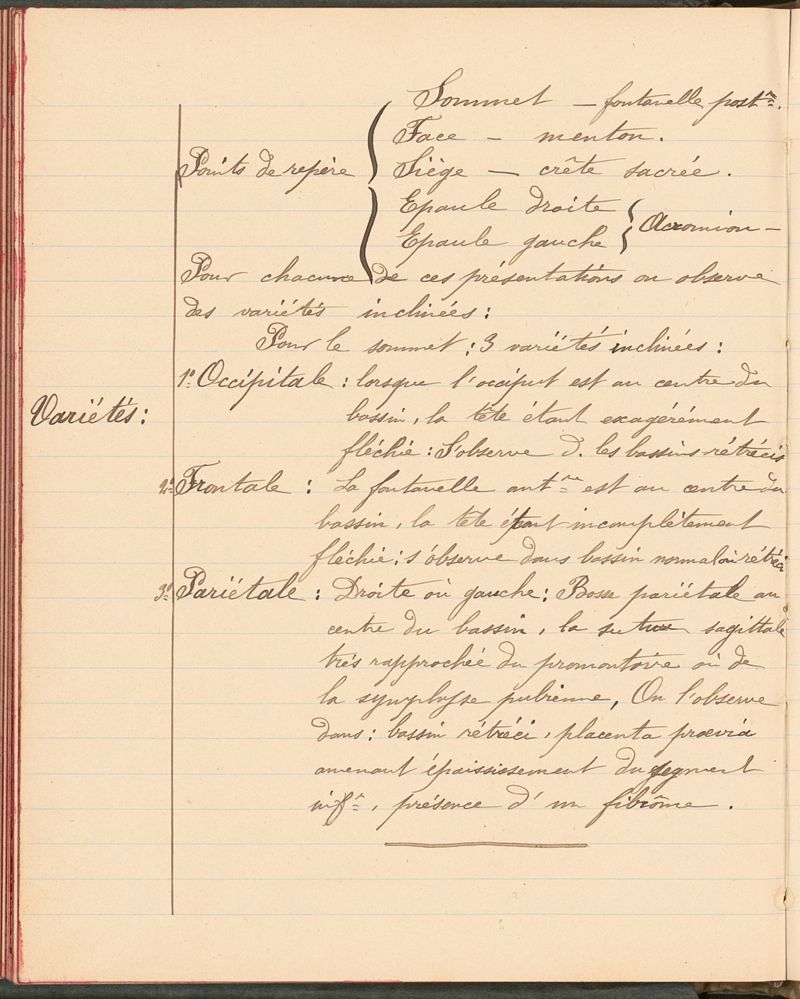 Sommet — fontanelle postre.
Face — menton.
Points de repère
Siège — crête sacrée.
Epaule droite
Epaule gauche
Acromion —
Pour chacune de ces présentations on observe
des variétés inclinées :
Pour le sommet : 3 variétés inclinées :
1º Occipitale : lorsque l'occiput est au centre du
Variétés :
bassin, la tête étant exagérément
fléchie : S'observe d. les bassins rétrécis
2º Frontale : La fontanelle antre est au centre du
bassin, la tête étant incomplètement
fléchie : s'observe dans bassin normal ou rétréci
3º Pariétale : Droite ou gauche : Bosse pariétale au
centre du bassin, la suture sagittale
très rapprochée du promontoire ou de
la symphyse pubienne, On l'observe
dans : bassin rétréci, placenta prævia
amenant épaississement du segment
infr, présence d'un fibrôme.